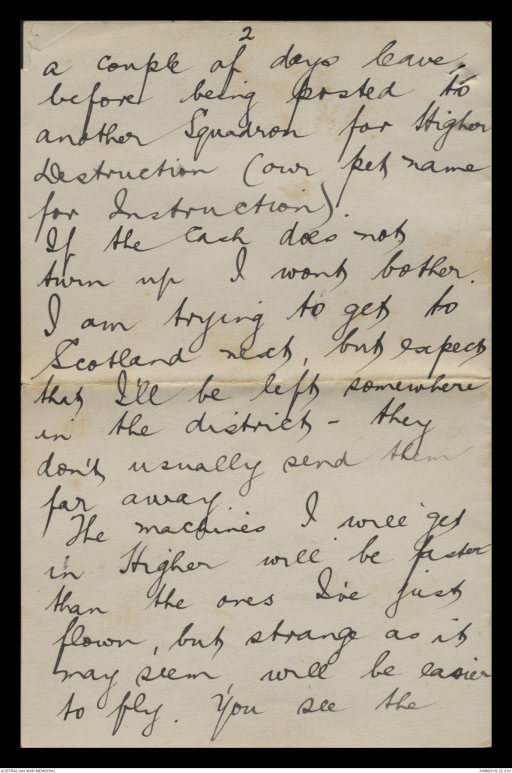 2
a couple of days leave
before being posted to
another Squadron for Higher
Destruction (our pet name
for Instruction).
If the cash does not
turn up I wont bother.
I am trying to get to
Scotland next, but expect
that I'll be left somewhere
in the district - they
don't usually send them
far away.
The machines I will get
in Higher will be faster
than the ones I've just
flown, but strange as it
may seem, will be easier
to fly. You see the
AUSTRALIAN WAR MEMORIAL